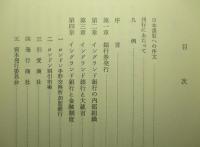 目次
日本語版への序文
刊行にあたって
凡例
序言
第一章 銀行券発行
第二章 イングランド銀行の内部組織
第三章 イングランド銀行と大蔵省
第四章 イングランド銀行と金融制度
一 ロンドン手形交換所加盟銀行
二 ロンドン割引市場
三 引受商社
四 発行商社
五 資本発行委員会